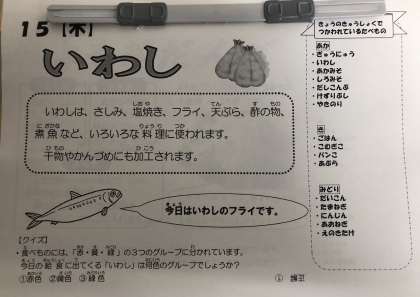 15【木】
いわし
いわしは、さしみ、塩焼き、フライ、天ぷら、酢の物、
煮魚など、いろいろな料理に使われます。
干物やかんづめにも加工されます。
今日はいわしのフライです。
【クイズ】
・食べものには、「赤・黄・緑」の3つのグループに分かれています。
今日の給食に出てくる「いわし」は何色のグループでしょうか?
①赤色 ②黄色 ③緑色
きょうのきゅうしょくで
つかわれているたべもの
あか
・ぎゅうにゅう
・いわし
・あかみそ
・しろみそ
・だしこんぶ
・けずりぶし
・やきのり
き
・ごはん
・こむぎこ
・パンこ
・あぶら
みどり
・だいこん
・たまねぎ
・にんじん
・あおねぎ
・えのきたけ